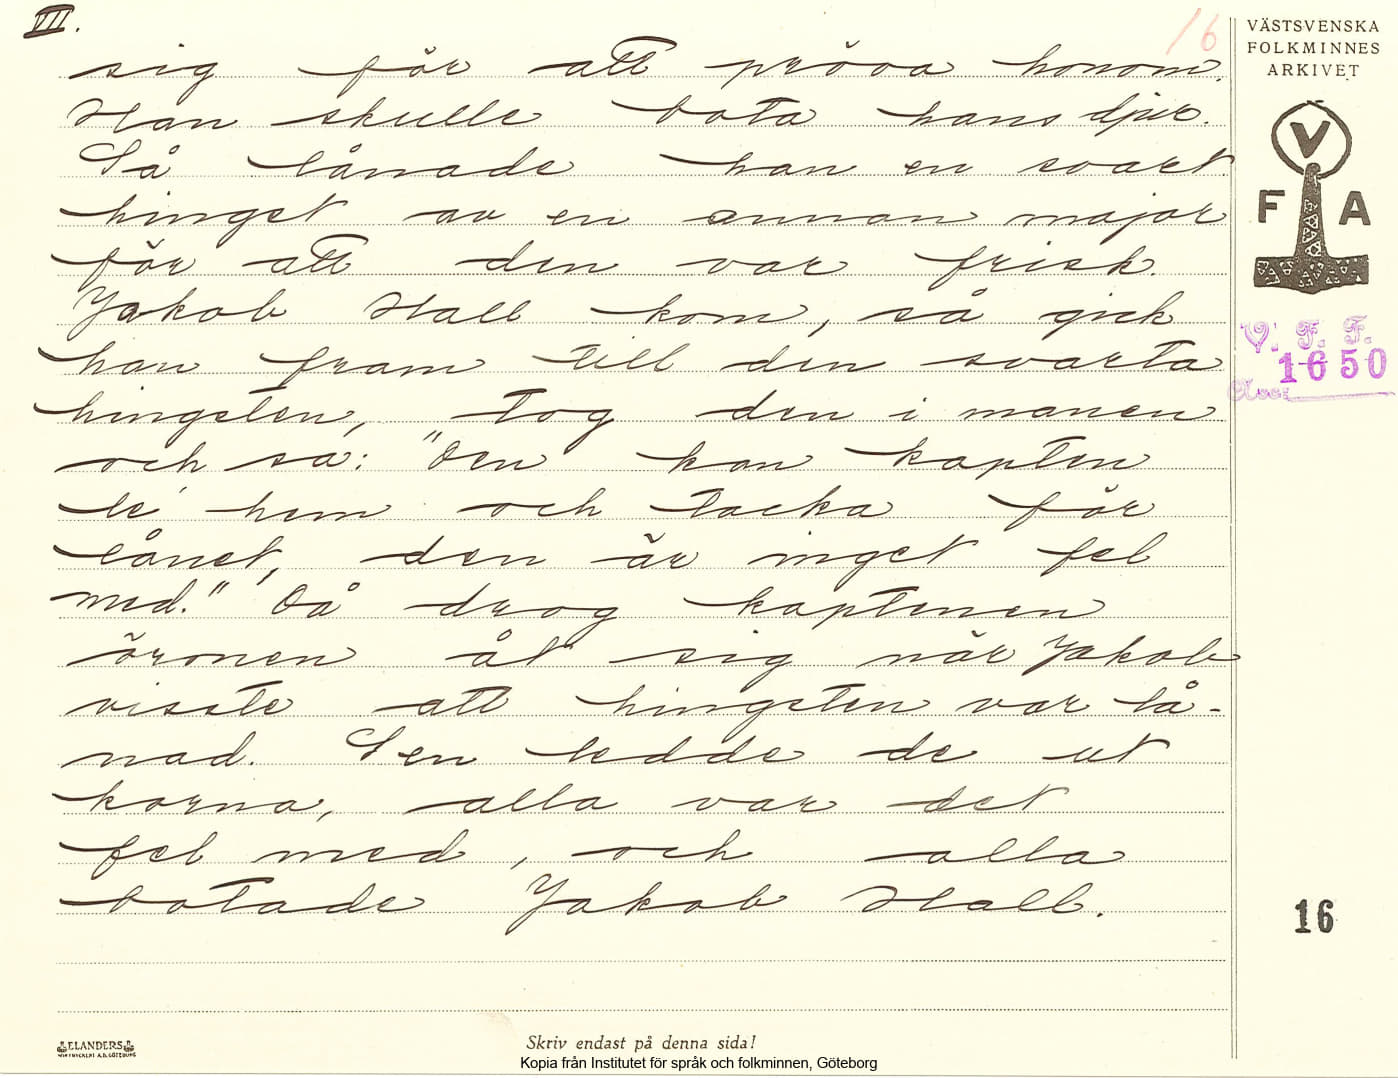 VII.
16
sig för att pröva honom.
Han skulle bota hans djur.
Så lånade han en svart
hingst av en annan major
för att den var frisk.
Jakob Hall kom, så gick
han fram till den svarta
hingsten, tog den i manen
och sa: "Den kan kapten
le' hem och tacka för
lånet, den är inget fel
med." Då drog kaptenen
öronen åt sig när Jakob
visste att hingsten var lå-
nad. Sen ledde de ut
korna, alla var det
fel med, och alla
botade Jakob Hall.
VÄSTSVENSKA
FOLKMINNES
ARKIVET
V
F A
V. F. F.
1650
Acc:
16
ELANDERS
Skriv endast på denna sida!
Kopia från Institutet för språk och folkminnen, Göteborg